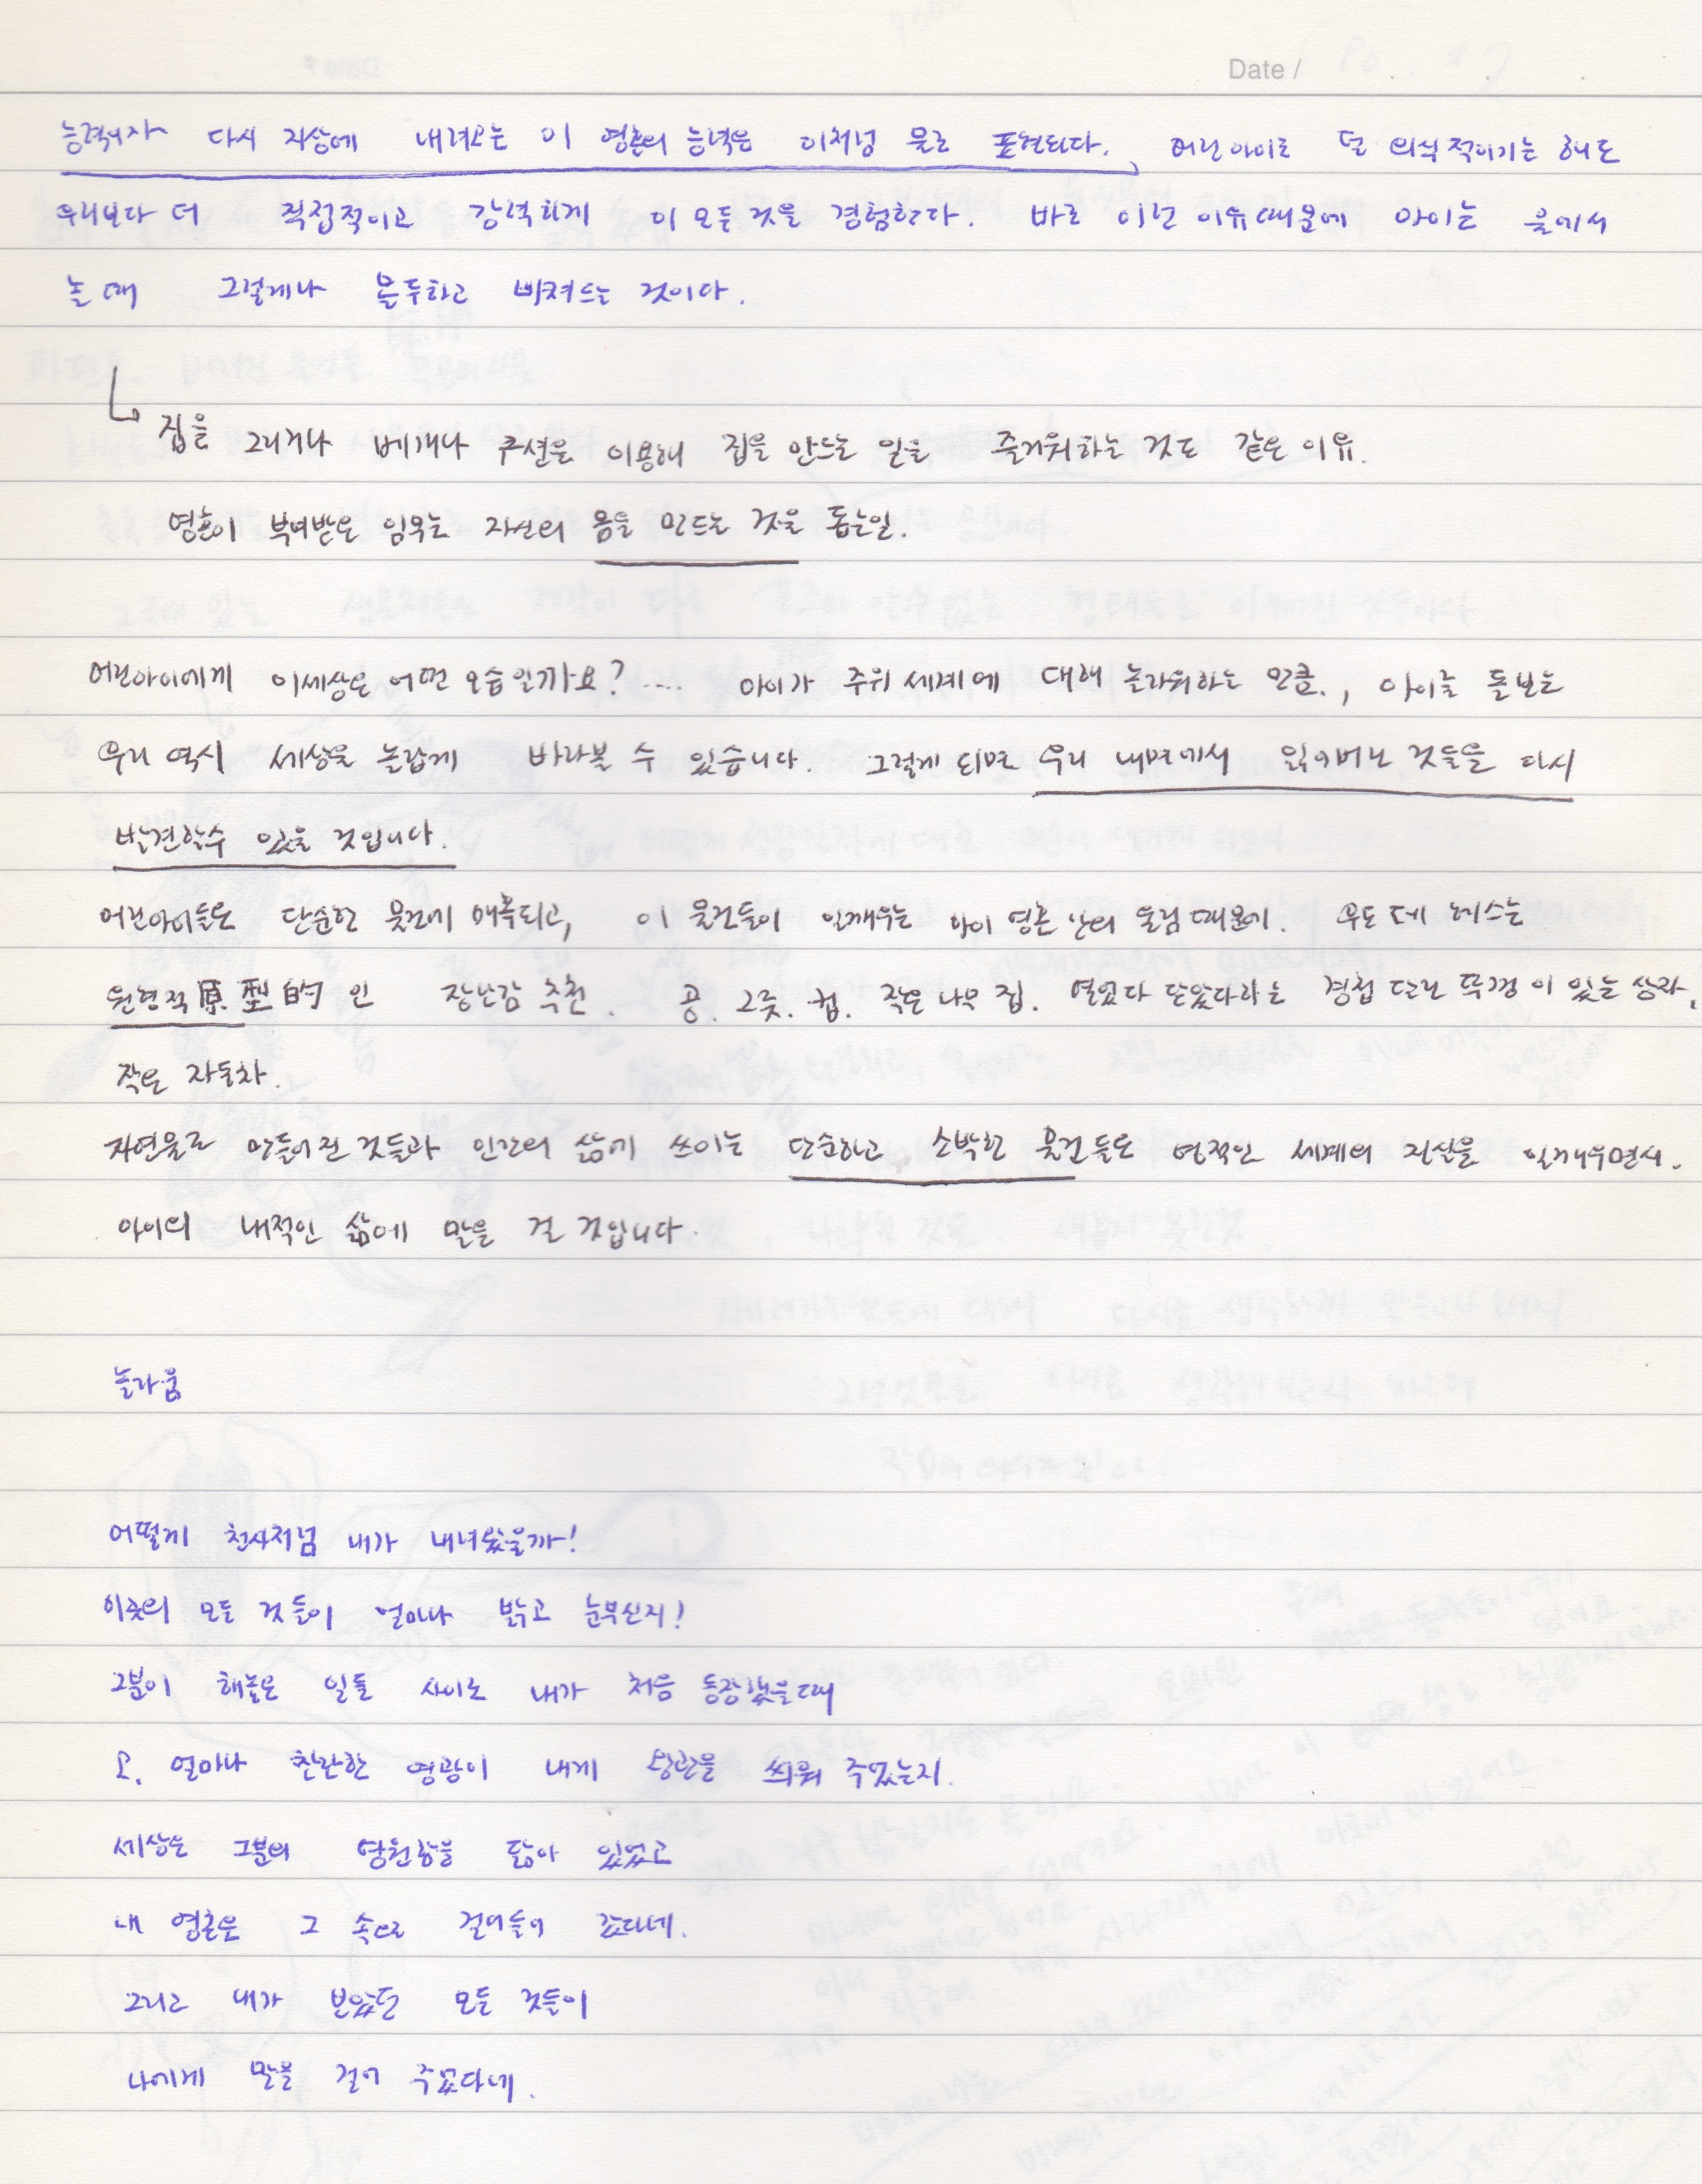 Date /
능력이자 다시 지상에 내려오는 이 영혼의 능력은 이처럼 물로 표현되다. 어린 아이로 덜 의식적이기는 해도
우리보다 더 직접적이고 강력하게 이 모든 것을 경험한다. 바로 이런 이유때문에 아이는 물에서
놀 때 그렇게나 몰두하고 빠져드는 것이다.
집을 그리거나 베개나 쿠션을 이용해 집을 만드는 일을 즐거워하는 것도 같은 이유.
영혼이 부여받은 임무는 자신의 몸을 만드는 것을 돕는일.
어린아이에게 이세상은 어떤 모습일까요? .... 아이가 주위 세계에 대해 놀라워하는 만큼., 아이를 돌보는
우리 역시 세상을 놀랍게 바라볼 수 있습니다. 그렇게 되면 우리 내면에서 잃어버린 것들을 다시
발견할수 있을 것입니다.
어린아이들은 단순한 물건에 매혹되고, 이 물건들이 일깨우는 아이 영혼 안의 울림때문에. 우도 데 헤스는
원형적原型的인 장난감 추천. 공. 그릇. 컵. 작은 나무 집. 열었다 닫았다하는 경첩 달린 뚜껑이 있는 상자,
작은 자동차.
자연물로 만들어진 것들과 인간의 삶에 쓰이는 단순하고 소박한 물건들은 영적인 세계의 진실을 일깨우면서.
아이의 내적인 삶에 말을 걸 것입니다.
놀라움
어떻게 천사처럼 내가 내려왔을까!
이곳의 모든 것들이 얼마나 밝고 눈부신지!
그분이 해놓은 일들 사이로 내가 처음 등장했을때
오, 얼마나 찬란한 영광이 내게 왕관을 씌워 주었는지.
세상은 그분의 영원함을 닮아 있었고
내 영혼은 그 속으로 걸어들어 갔다네.
그리고 내가 보았던 모든 것들이
나에게 말을 걸어 주었다네.